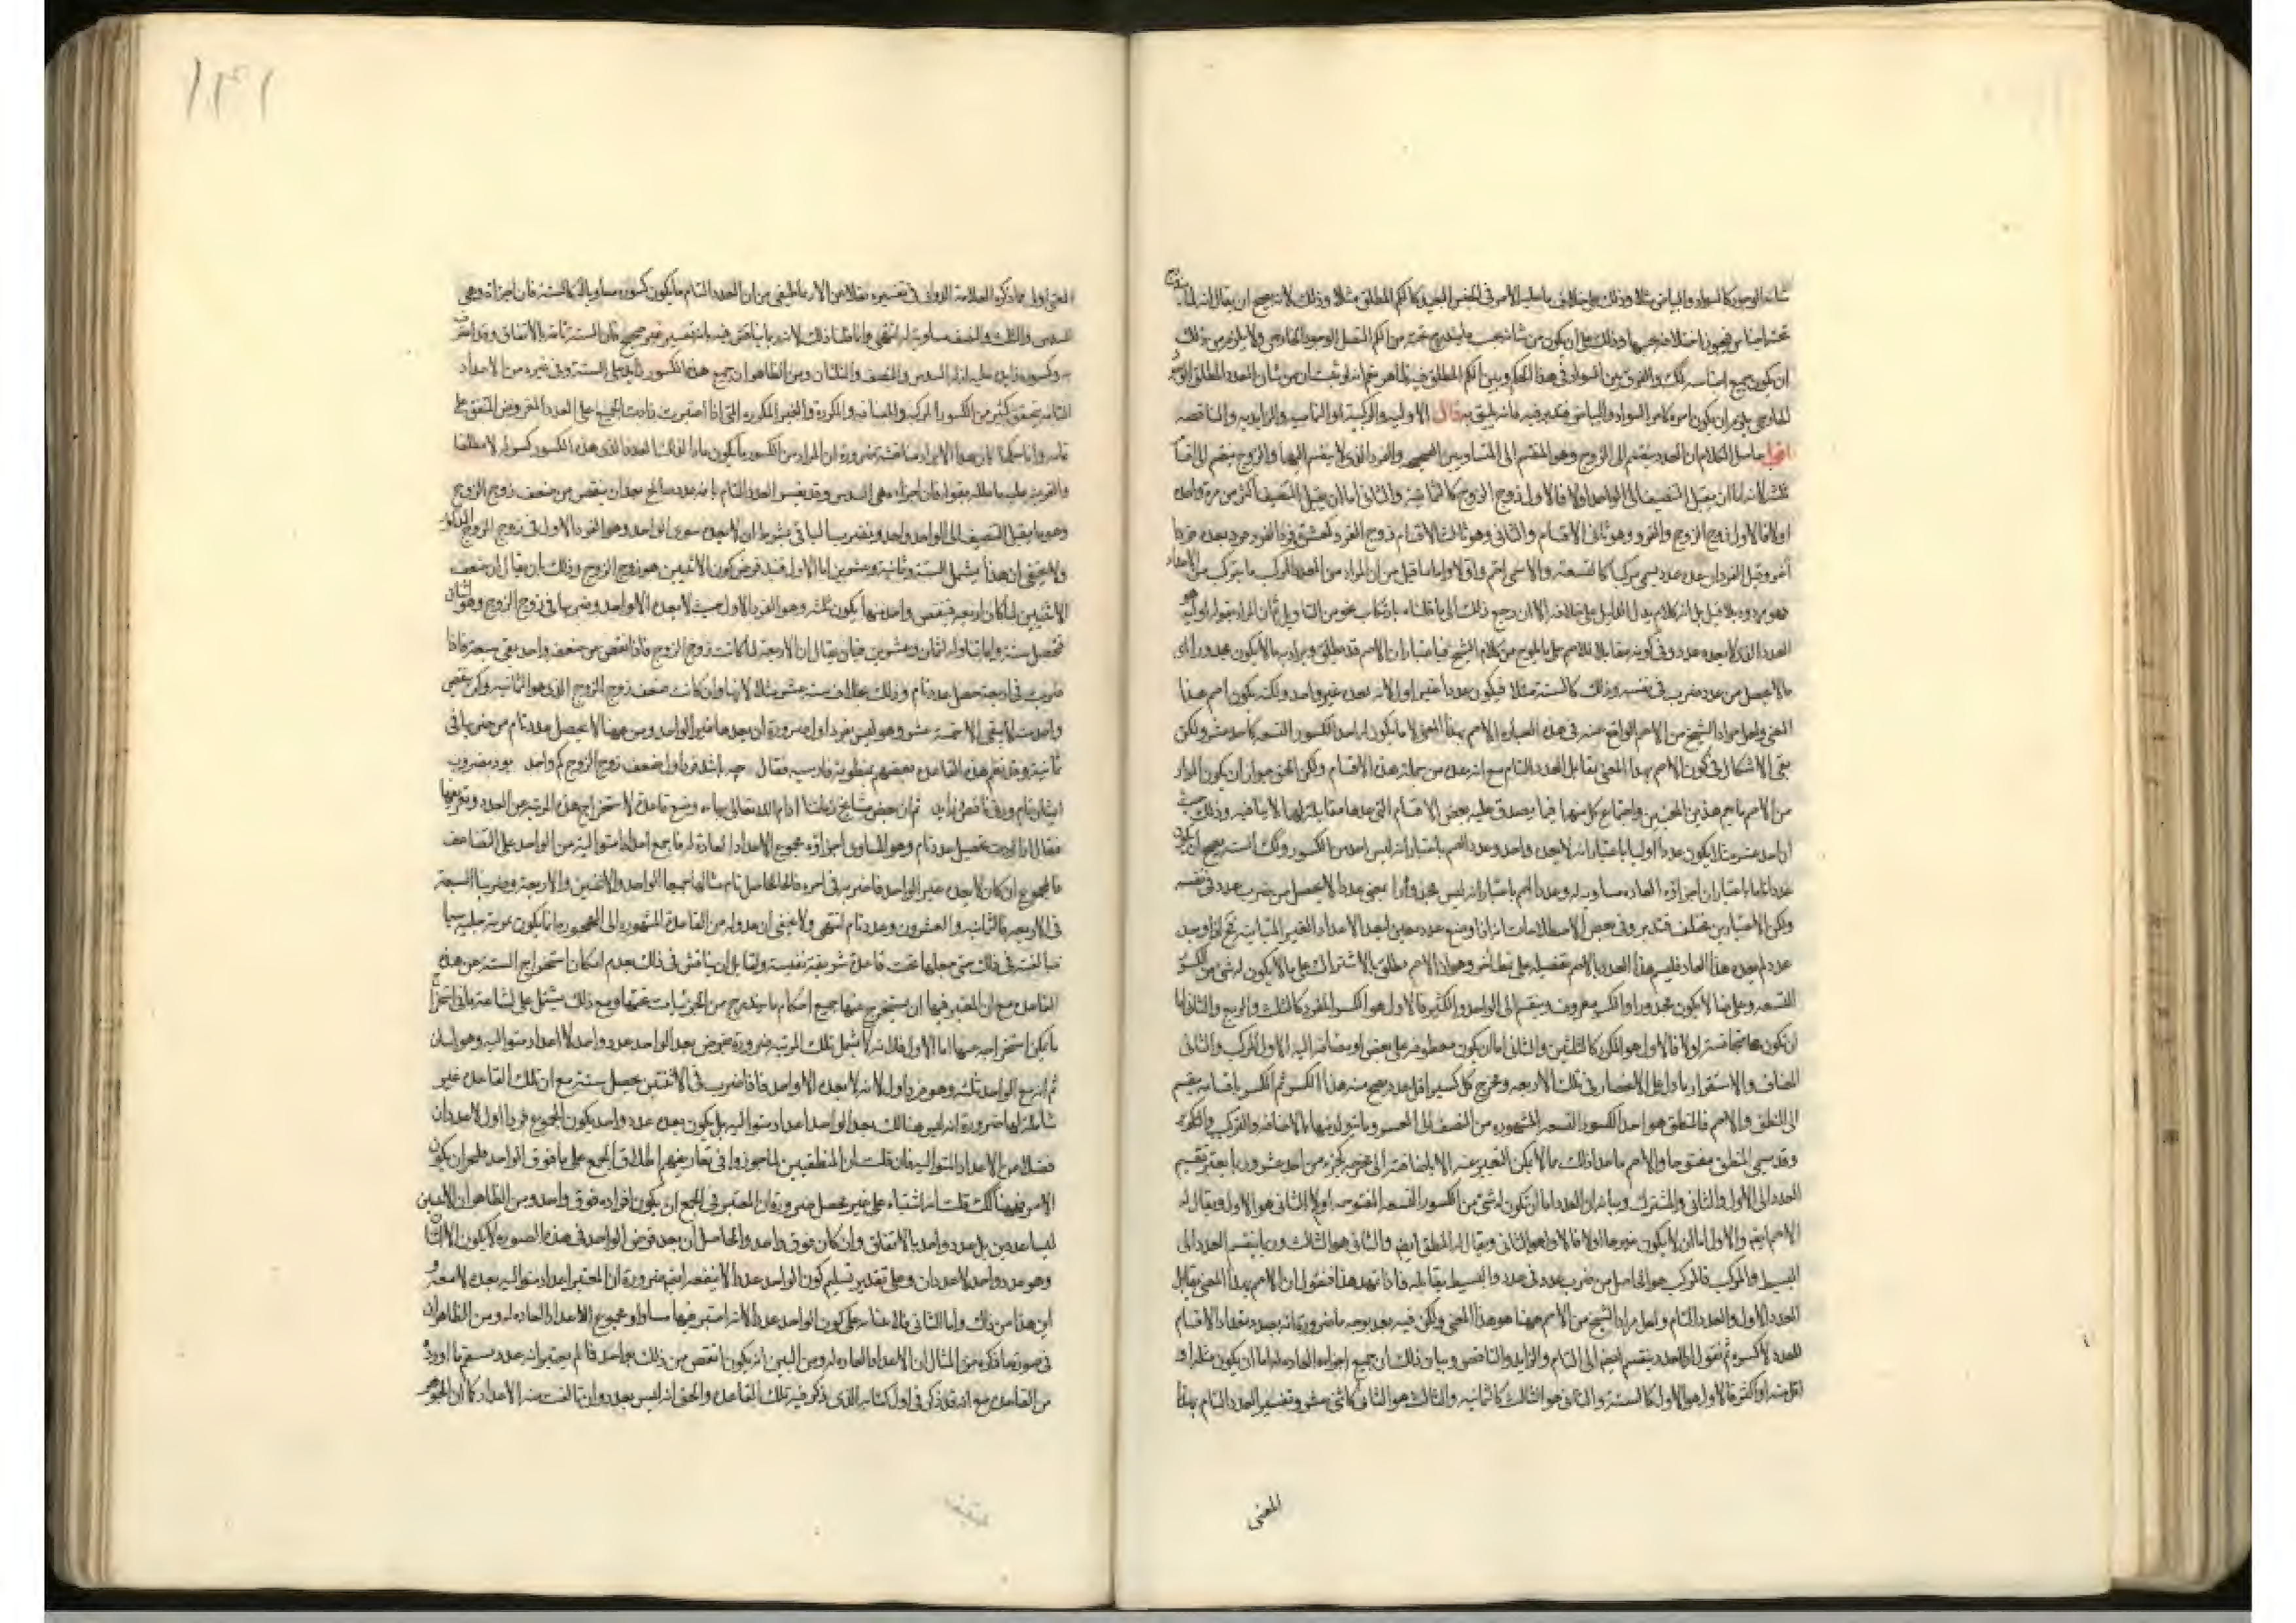 شانه الوجود كالسواد والبياض مثلا وذلك على خلاف ما عليه الامر في الجنس البعيد كالكم المطلق مثلا وذلك لانه يصح ان يقال انه لما
تحته اجناس فيجوز اختلافه بحسبها وذلك على ان يكون من شانه بحسب ما يندرج تحته من الكم المتصل الوجود الخارجي ولا يلزم من ذلك
ان يكون جميع اجناسه كذلك والفرق بين السواد في هذا الحكم وبين الكم المطلق فيه ظاهر نعم انه لو ثبت ان من شان العدد المطلق الوجود
الخارجي يلزم ان يكون امره كامر السواد والبياض فتدبر فيه فانه يليق به قال الاولية والتركيبية او التامية والزايدية والناقصية
حاصل الكلام ان العدد ينقسم الى الزوج وهو المنقسم الى المتساويين الصحيحين والفرد الذي لا ينقسم اليها والزوج ينقسم الى اقسام
ثلثة لانه اما ان يقبل التنصيف الى الواحد او لا فالاول زوج الزوج كالثمانية والثاني اما ان يقبل التنصيف اكثر من مرة واحدة
او لا فالاول زوج الزوج والفرد وهو ثاني الاقسام والثاني وهو ثالث الاقسام زوج الفرد كعشرة
آخر وقيل الفرد ان عده عدد يسمى مركبا كالتسعة والا سمي اصم واولا واما ما قيل من ان المراد من العدد المركب ما يتركب من الاعداد
فهو مردود
العدد الذي لا يعده عدد وفي كونه مقابلا للاصم على ما يلوح من كلام الشيخ فباعتبار ان الاصم قد يطلق ويراد به ما لا يكون مجذورا اي
ما لا يحصل من عدد ضرب في نفسه وذلك كالستة مثلا فيكون عددا غير اول لانه يعده غير واحد ولكنه يكون اصم بهذا
المعنى ولعل مراد الشيخ من الاصم الواقع عنه في هذه العبارة الاصم بهذا المعنى لا ما يكون له احد الكسور التسعة كاحد عشر ولكن
بقي الاشكال في كون الاصم بهذا المعنى يقابل العدد التام مع انه عده من جملة هذه الاقسام ولكن الحق جواز ان يكون المراد
من الاصم ما يعم هذين المعنيين واجتماع كل منهما فيما يصدق عليه بعض الاقسام التي عدها مقابلة لها لا ينافيه وذلك حيث
ان احد عشر مثلا يكون عددا اوليا باعتبار انه لا يعده واحد وعدد اصم باعتبار انه ليس له احد من الكسور
عددا تاما باعتبار ان اجزاؤه العادة مساوية له وعددا اصم باعتبار انه ليس مجذورا بمعنى عدد لا يحصل من ضرب عدد في نفسه
ولكن الاعتبارين مختلف فتدبر وفي بعض الاصطلاحات انه اذا وضع عدد معين لبعد الاعداد الغير المتباينة
عدد لم يعده هذا العاد فليسم هذا العدد بالاصم
التسعة وعلى ما لا يكون مجذورا والكسر معروف وينقسم الى الواحد والكثير فالاول هو الكسر المفرد كالثلث والربع والثاني اما
ان يكون متجانسة او لا فالاول هو المكرر كالثلثين والثاني اما ان يكون معطوفة على بعض او مضافة اليه الاول المركب والثاني
المضاف والاستقراء يدل على الانحصار في تلك الاربعة ومخرج كل كسر اقل عدد يصح منه هذا الكسر ثم الكسر باقسامه ينقسم
الى المنطق والاصم فالمنطق هو احد الكسور التسعة المشهورة من النصف الى العشر وما يتولد منها بالاضافة والتركيب والتكرير
وقد يسمى المنطق مفتوحا والاصم ما عدا ذلك مما لا يمكن التعبير عنه الا بالاضافة الى مخرجه كجزء من احد عشر وربما يعتبر تقسيم
العدد الى الاول والثاني والمشترك وبيانه ان العدد اما ان تكون له شيء من الكسور التسعة المفتوحة او لا الثاني هو الاول ويقال له
الاصم ايضا والاول اما ان لا يكون مجذورا او لا فالاول هو الثاني ويقال له المنطق ايضا والثاني هو الثالث وربما ينقسم العدد الى
البسيط والمركب فالمركب هو الحاصل من ضرب عدد في عدد والبسيط يقابله فاذا تمهد هذا فنقول ان الاصم بهذا المعنى يقابل
العدد الاول والعدد التام ولعل مراد الشيخ من الاصم ههنا هو هذا المعنى ولكن فيه بعد بوجه ما ضرورة انه بصدد تعداد الاقسام
للعدد لا كسوره ثم نقول ان العدد ينقسم ايضا الى التام والزايد والناقص وبيان ذلك ان جميع اجزاءه العادة له اما ان يكون مثله او
اقل منه او اكثر فالاول هو الاول كالستة والثاني هو الثالث كالثمانية والثالث هو الثاني كاثني عشر وتفسير العدد التام بهذا
المعنى
١٣١
المعنى اولى مما ذكره العلامة الدواني في تفسيره نقلا من الارثماطيقي من ان العدد التام ما يكون كسوره مساوية له كالستة فان اجزاءه وهي
السدس والثلث والنصف مساوية له انتهى وانما قلنا ذلك لانه ربما يناقش فيه بانه تفسير غير صحيح فان الستة تامة بالاتفاق
وكسوره زايدة عليه اذ له السدس والنصف والثلثان ومن الظاهر ان جميع هذه الكسور زايد على الستة وفي غيره من الاعداد
التامة يتحقق كثير من الكسور المركبة والمضافة والمكررة والغير المكررة التي اذا اعتبرت زادت على العدد المفروض المتفق على
تمامه وانما ان هذا الايراد مناقشة ضرورة ان المراد من الكسور ما يكون عادا لذلك العدد الذي هذه الكسور كسوره لا مطلقا
والقرينة عليه ما مثله بقوله فان اجزاءه هي السدس وقد يفسر العدد التام بانه عدد صالح بعد ان ينقص من ضعف زوج الزوج
وهو ما يقبل التنصيف الى الواحد واحد ويضرب الباقي بشرط ان لا يعده سوى الواحد وهو الفرد الاول في زوج الزوج المذكور
ولا يخفى ان هذا يشمل الستة وثمانية وعشرين اما الاول فعند فرض كون الاثنين هو زوج الزوج وذلك بان يقال ان ضعف
الاثنين لما كان اربعة فينقص واحد منها يكون ثلثة وهو الفرد الاول حيث لا يعده الا واحد وضربها في زوج الزوج وهو اثنان
فتحصل ستة واما تناوله لثمان وعشرين فبان يقال ان الاربعة لما كانت زوج الزوج فاذا نقص من ضعفه واحد بقي سبعة فاذا
ضربت في اربعة حصل عدد تام وذلك بخلاف ستة عشر مثلا لانها وان كانت ضعف زوج الزوج الذي هو الثمانية ولكن بنقص
واحد منه لا يبقى الا خمسة عشر وهو ليس بفرد اول ضرورة ان يعدها غير الواحد ومن ههنا لا يحصل عدد تام من ضربها في
ثمانية وقد نظم هذه القاعدة بعضهم بمنظومة فارسية فقال چه باشد فرد اول ضعف زوج الزوج كم واحد بود مضروب
ايشان تام ورنه ناقص وزايد ثم ان بعض مشايخ زماننا ادام الله تعالى بهاءه وضع قاعدة لاستخراج هذه المرتبة من العدد
فقال اذا اردت تحصيل عدد تام وهو المساوي اجزاؤه مجموع الاعداد العادة له فاجمع اعدادا متوالية من الواحد على التضاعف
فالمجموع ان كان لا يعده غير الواحد فاضربه في اخره فالحاصل تام مثاله جمعنا الواحد والاثنين والاربعة وضربنا السبعة
في الاربعة فالثمانية والعشرون وعدد تام انتهى ولا يخفى ان عدوله من القاعدة المشهورة الى المهجورة
في ذلك حتى جعلها تحت قاعدة شريفة نفيسة ولقايل ان يناقش في ذلك بعدم امكان استخراج الستة عن هذه
القاعدة مع ان المعتبر فيها ان يستخرج عنها جميع احكام ما يندرج من الجزئيات تحتها ومع ذلك يشتمل على
ما يمكن استخراجه منها اما الاول فلانه لا يشمل تلك المرتبة ضرورة بعد الواحد عدد واحد لا اعداد متوالية وهو اثنان
ثم انه مع الواحد ثلثة وهو فرد اول لانه لا يعده الا واحد فاذا ضرب في الاثنين يحصل ستة مع ان تلك القاعدة غير
شاملة لها ضرورة انه ليس هنالك بعد الواحد اعداد متوالية بل يكون بعده عدد واحد يكون المجموع فردا اول لا عددان
فضلا من الاعداد المتوالية فان قلت ان المنطقيين لما جوزوا في تعاريفهم اطلاق الجمع على ما فوق الواحد فليجز ان يكون
الامر ههنا كذلك قلت انه اشتباه على غير محصل ضرورة ان المعتبر في الجمع ان يكون افراده فوق واحد ومن الظاهر ان الاثنين
ليسا عددين بل عدد واحد بالاتفاق وان كان فوق واحد والحاصل ان بعد فرض الواحد في هذه الصورة لا يكون الا اثنان
وهو عدد واحد لا عددان وعلى تقدير تسليم كون الواحد عددا لا ينفعه ايضا ضرورة ان المعتبر اعداد متوالية بعده لا معه
اين هذا من ذلك واما الثاني فلابتنائه على كون الواحد عددا لانه اعتبر فيها مساواة مجموع الاعداد العادة له ومن الظاهر ان
في صورة ما ذكره من المثال ان الاعداد العادة له ومن البين انه يكون انقص من ذلك بواحد فما لم يعتبر انه عدد لم يستقم ما اورده
من القاعدة مع انه قد ذكر في اول كتابه الذي ذكر فيه تلك القاعدة والحق انه ليس بعدد وان تالفت منه الاعداد كما ان الجوهر